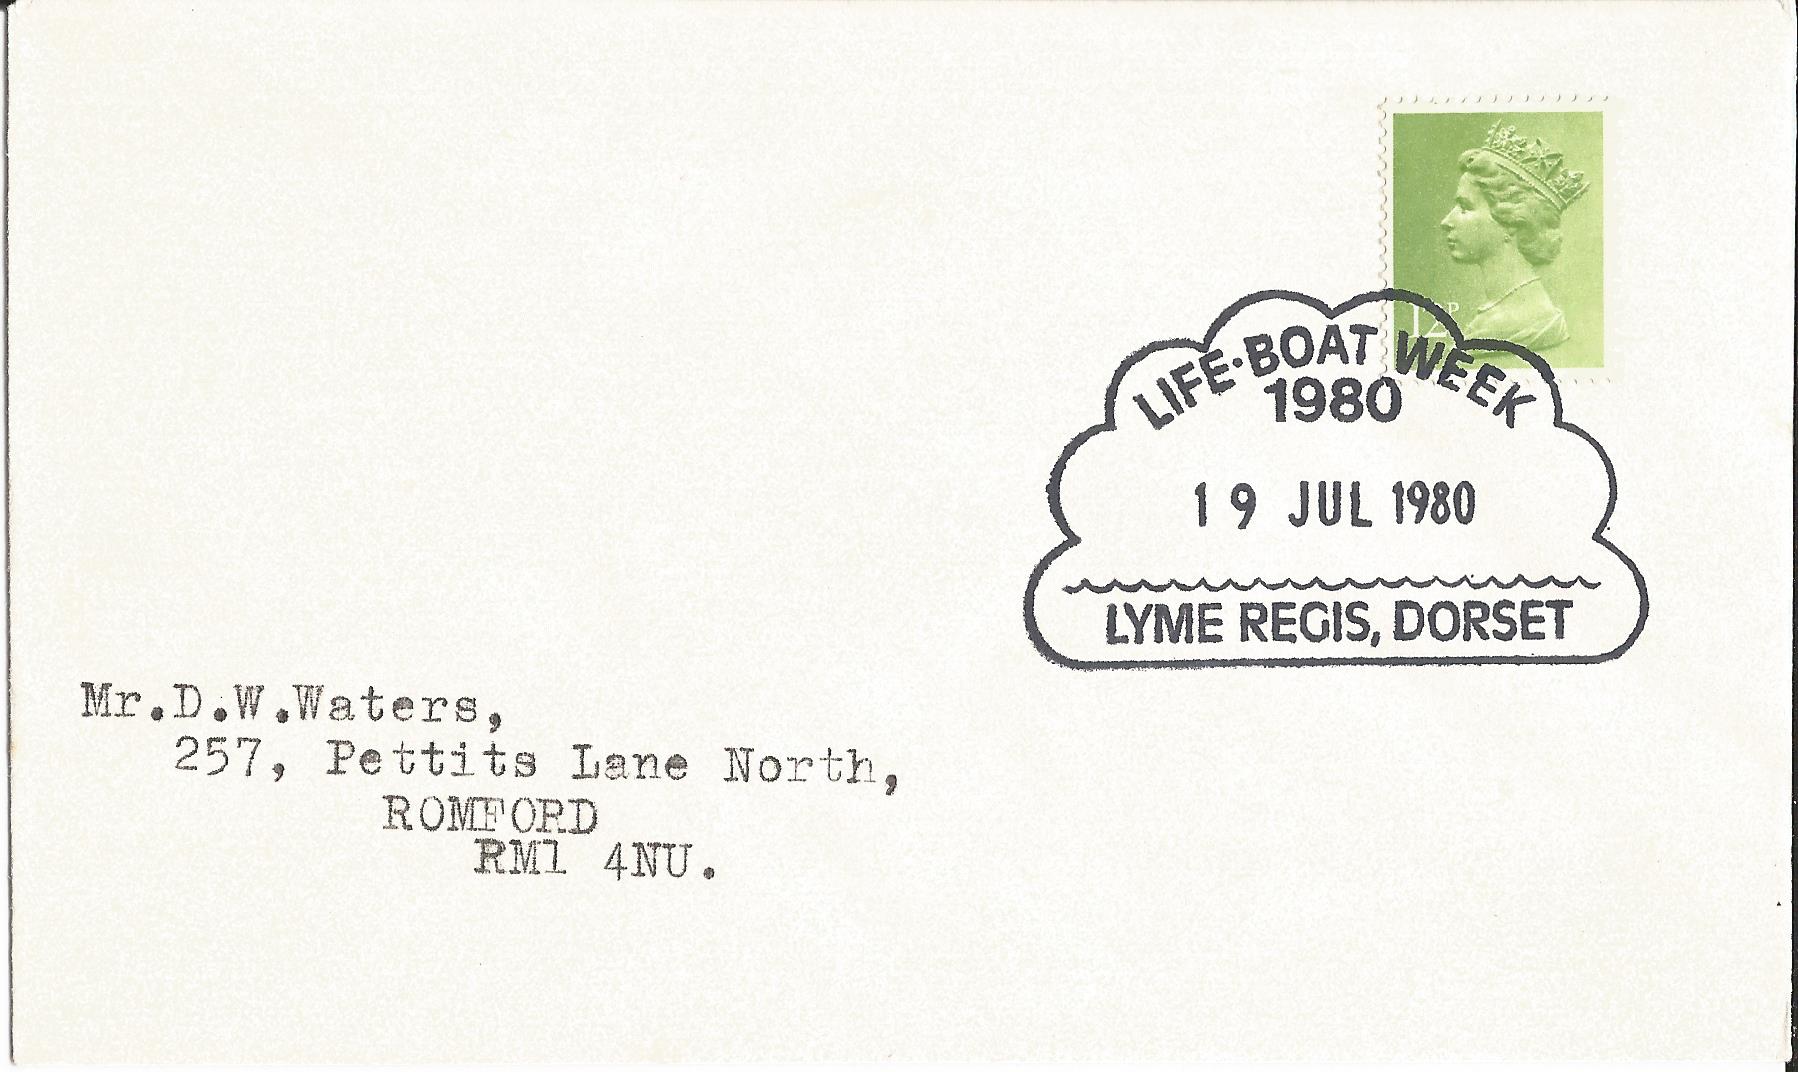 12P
LIFE·BOAT WEEK
1980
19 JUL 1980
LYME REGIS, DORSET
Mr.D.W.Waters,
257, Pettits Lane North,
ROMFORD
RM1 4NU.